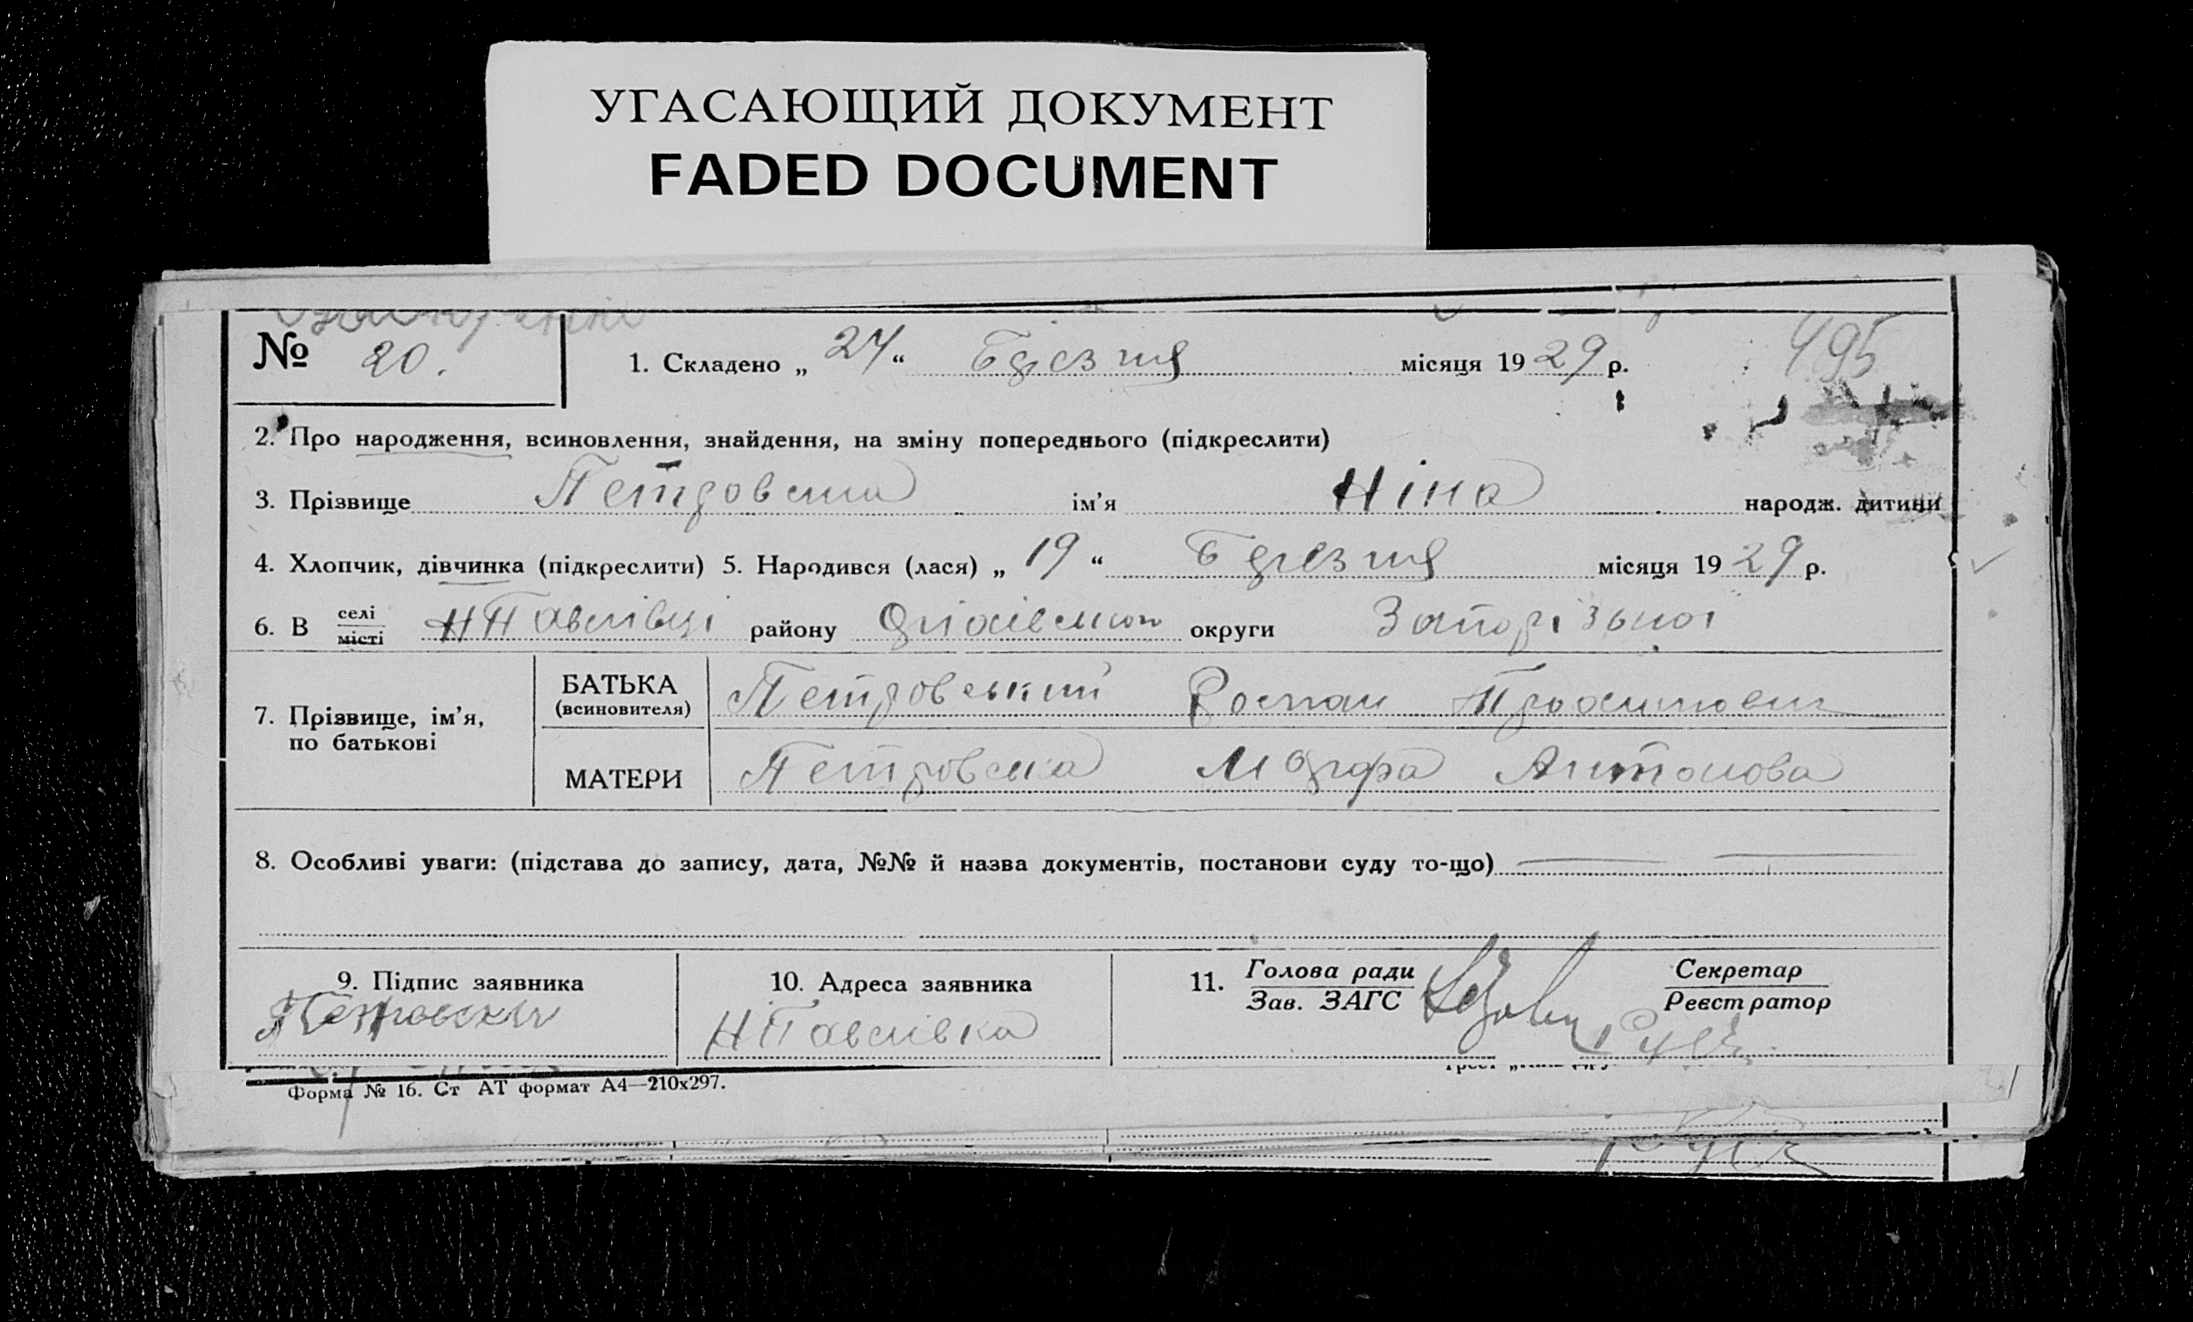 УГАСАЮЩИЙ ДОКУМЕНТ
FADED DOCUMENT
495
№ 20. 1. Складено „ 24 “ Березня місяця 1929 р.
2. Про народження, всиновлення, знайдення, на зміну попереднього (підкреслити)
3. Прізвище Петровська ім’я Ніна народж. дитини
4. Хлопчик, дівчинка (підкреслити) 5. Народився (лася) „ 19 “ Березня місяця 1929 р.
6. В селі місті Н Павлівці району округи Запорізької
7. Прізвище, ім’я, по батькові
БАТЬКА (всиновителя) Петровський Роман
МАТЕРИ Петровська Марфа Антонова
8. Особливі уваги: (підстава до запису, дата, №№ й назва документів, постанови суду то-що)
9. Підпис заявника 10. Адреса заявника 11. Голова ради Зав. ЗАГС Секретар Реєстратор
Н Павлівка
Форма № 16. Ст АТ формат А4—210х297.